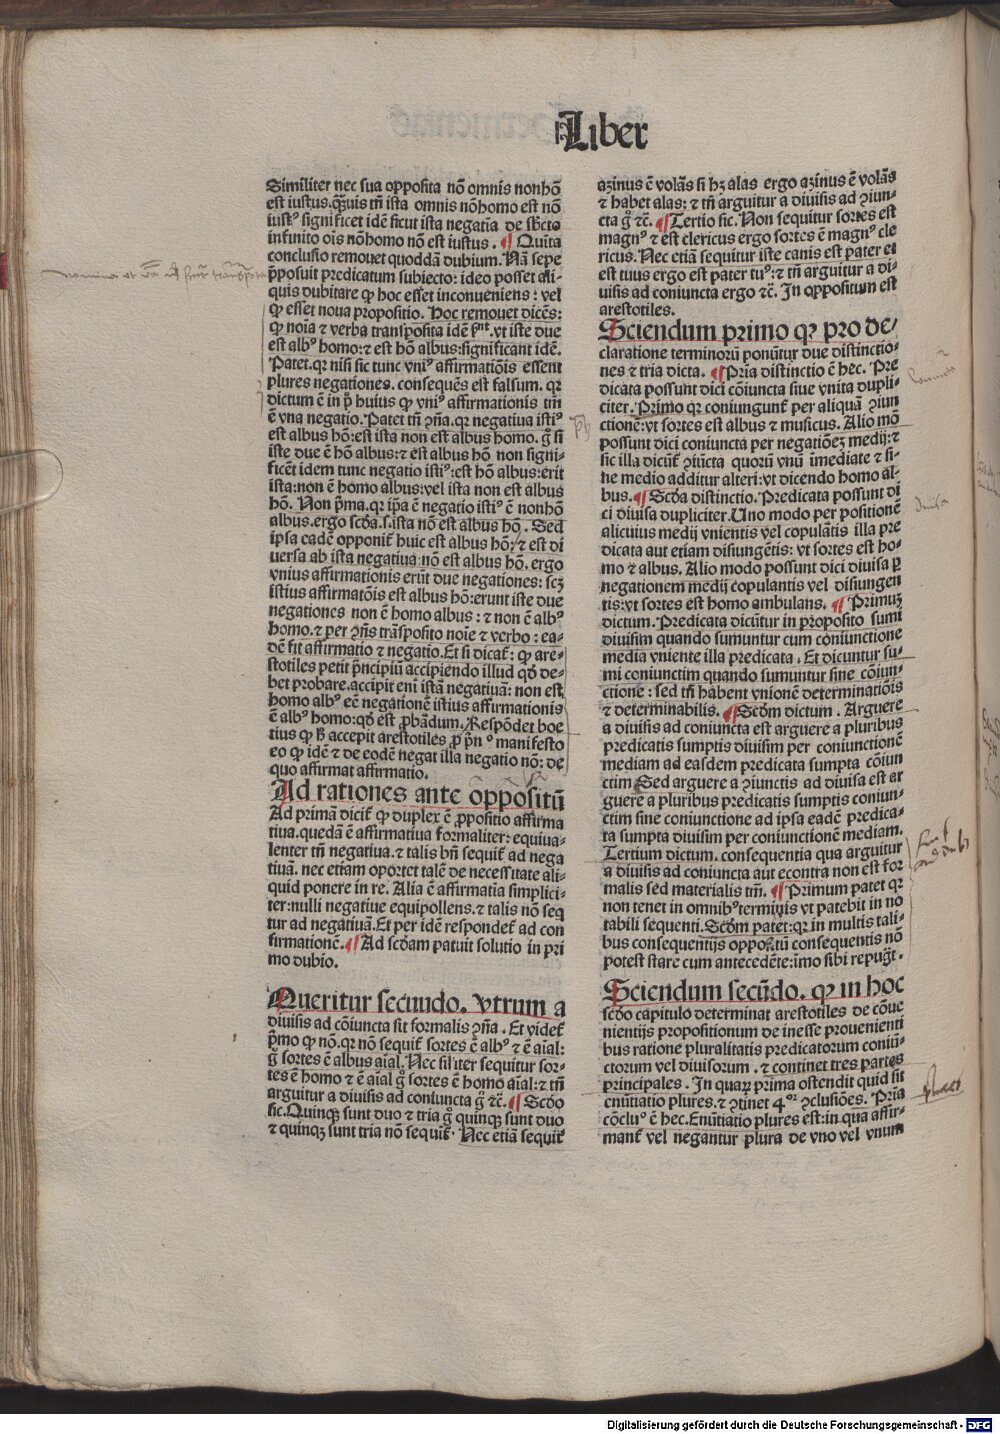 Liber
Similiter nec sua opposita nō omnis nonhō
est iustus. q̄zuis tn̄ ista omnis nōhomo est nō
iustꝰ significet idē sicut ista negatīa de sb̄cto
infinito oīs nōhomo nō est iustus. ¶ Quīta
conclusio remouet quoddā dubium. Nā sepe
p̄posuit predicatum subiecto: ideo posset ali-
quis dubitare ꝙ hoc esset inconueniens: vel
ꝙ esset noua propositio. Hoc remouet dicēs:
ꝙ noīa ⁊ verba transposita idē sn̄t. vt iste due
est albꝰ homo: ⁊ est hō albus: significant idē.
Patet. qr nisi sic tunc vniꝰ affirmatiōis essent
plures negationes. consequēs est falsum. qr
dictum ē in pº huius ꝙ vniꝰ affirmationis tm̄
ē vna negatio. Patet tn̄ ꝯn̄a. qr negatiua istiꝰ
est albus hō: est ista non est albus homo. g̊ si
iste due ē hō albus: ⁊ est albus hō non signi-
ficēt idem tunc negatio istiꝰ: est hō albus: erit
ista: non ē homo albus: vel ista non est albus
hō. Non p̄ma. qr ip̄a ē negatio istiꝰ ē nonhō
albus. ergo scd̄a. s. ista nō est albus hō. Sed
ipsa cadē opponit᷑ huic est albus hō: ⁊ est di
uersa ab ista negatiua: nō est albus hō. ergo
vnius affirmationis erūt due negationes: scꝫ
istius affirmatōis est albus hō: erunt iste due
negationes non ē homo albus: ⁊ non ē albꝰ
homo. ⁊ per ꝯn̄s trāsposito noīe ⁊ verbo: ea-
dē fit affirmatio ⁊ negatio. Et si dicat᷑: ꝙ are-
stotiles petit p̄ncipiū accipiendo illud qd̄ de-
bet probare. accipit eni istā negatiuā: non est
homo albꝰ eē negationē istius affirmationis
ē albꝰ homo: qd̄ est ꝓbādum. Respōdet boe
tius ꝙ b̄ accepit arestotiles ꝓ p̄n º manifesto
eo ꝙ idē ⁊ de eodē negat illa negatio nō: de
quo affirmat affirmatio.
Ad rationes ante oppositū
Ad primā dicit᷑ ꝙ duplex ē ꝓpositio affirma
tiua. quedā ē affirmatiua formaliter: equiua-
lenter tn̄ negatiua. ⁊ talis bn̄ sequit᷑ ad nega
tiuā. nec etiam oportet talē de necessitate ali-
quid ponere in re. Alia ē affirmatīa simplici-
ter: nulli negatiue equipollens. ⁊ talis nō seq
tur ad negatiuā. Et per idē respondet᷑ ad con
firmationē. ¶ Ad scd̄am patuit solutio in pri
mo dubio.
Queritur secundo. vtrum a
diuisis ad cōiuncta sit formalis ꝯn̄a. Et videt᷑
p̄mo ꝙ nō. qr nō sequit᷑ sortes ē albꝰ ⁊ ē aīal:
g̊ sortes ē albus aīal. Nec sil̄iter sequitur sor-
tes ē homo ⁊ ē aīal g̊ sortes ē homo aīal: ⁊ tn̄
arguitur a diuisis ad coniuncta g̊ ⁊c̄. ¶ Scd̄o
sic. Quinqꝫ sunt duo ⁊ tria g̊ quinqꝫ sunt duo
⁊ quinqꝫ sunt tria nō sequit᷑. Nec etiā sequit᷑
azinus ē volās si hꝫ alas ergo azinus ē volās
⁊ habet alas: ⁊ tn̄ arguitur a diuisis ad ꝯiun-
cta g̊ ⁊c̄. ¶ Tertio sic. Non sequitur sortes est
magnꝰ ⁊ est clericus ergo sortes ē magnꝰ cle
ricus. Nec etiā sequitur iste canis est pater et
est tuus ergo est pater tuꝰ: ⁊ tn̄ arguitur a di-
uisis ad coniuncta ergo ⁊c̄. In oppositum est
arestotiles.
Sciendum primo ꝙ pro de-
claratione terminorū ponūtur due distinctio-
nes ⁊ tria dicta. ¶ Prīa distinctio ē hec. Pre
dicata possunt dici cōiuncta siue vnita dupli-
citer. Primo qr coniungunt᷑ per aliquā ꝯiun
ctionē: vt sortes est albus ⁊ musicus. Alio mō
possunt dici coniuncta per negationēꝫ medij: ⁊
sic illa dicūt᷑ ꝯiūcta quorū vnū imediate ⁊ si-
ne medio additur alteri: vt dicendo homo al-
bus. ¶ Scd̄a distinctio. Predicata possunt di
ci diuisa dupliciter. Uno modo per positionē
alicuius medij vnientis vel copulātis illa pre
dicata aut etiam disiungētis: vt sortes est ho-
mo ⁊ albus. Alio modo possunt dici diuisa ꝑ
negationem medij copulantis vel disiungen
tis: vt sortes est homo ambulans. ¶ Primuꝫ
dictum. Predicata dicūtur in proposito sumi
diuisim quando sumuntur cum coniunctione
media vniente illa predicata. Et dicuntur su-
mi coniunctim quando sumuntur sine cōiun-
ctione: sed tn̄ habent vnionē determinatiōis
⁊ determinabilis. ¶ Scd̄m dictum. Arguere
a diuisis ad coniuncta est arguere a pluribus
predicatis sumptis diuisim per coniunctionē
mediam ad easdem predicata sumpta cōiun
ctim Sed arguere a ꝯiunctis ad diuisa est ar
guere a pluribus predicatis sumptis coniun-
ctim sine coniunctione ad ipsa eadē predica-
ta sumpta diuisim per coniunctionē mediam.
Tertium dictum. consequentia qua arguitur
a diuisis ad coniuncta aut econtra non est for
malis sed materialis tm̄. ¶ Primum patet qr
non tenet in omnibꝰ terminis vt patebit in no
tabili sequenti. Scd̄m patet: qr in multis tali-
bus consequentijs oppositū consequentis nō
potest stare cum antecedēte: īmo sibi repug̅t.
Sciendum secūdo. ꝙ in hoc
scd̄o capitulo determinat arestotiles de cōue
nientijs propositionum de inesse prouenienti
bus ratione pluralitatis predicatorum coniū-
ctorum vel diuisorum. ⁊ continet tres partes
principales. In quaꝝ prima ostendit quid sit
enūtiatio plures. ⁊ ꝯtinet 4ºʳ ꝯclusiōes. Prīa
cōcluº ē hec. Enūtiatio plures est: in qua affir-
mant᷑ vel negantur plura de vno vel vnum
Digitalisierung gefördert durch die Deutsche Forschungsgemeinschaft - DFG